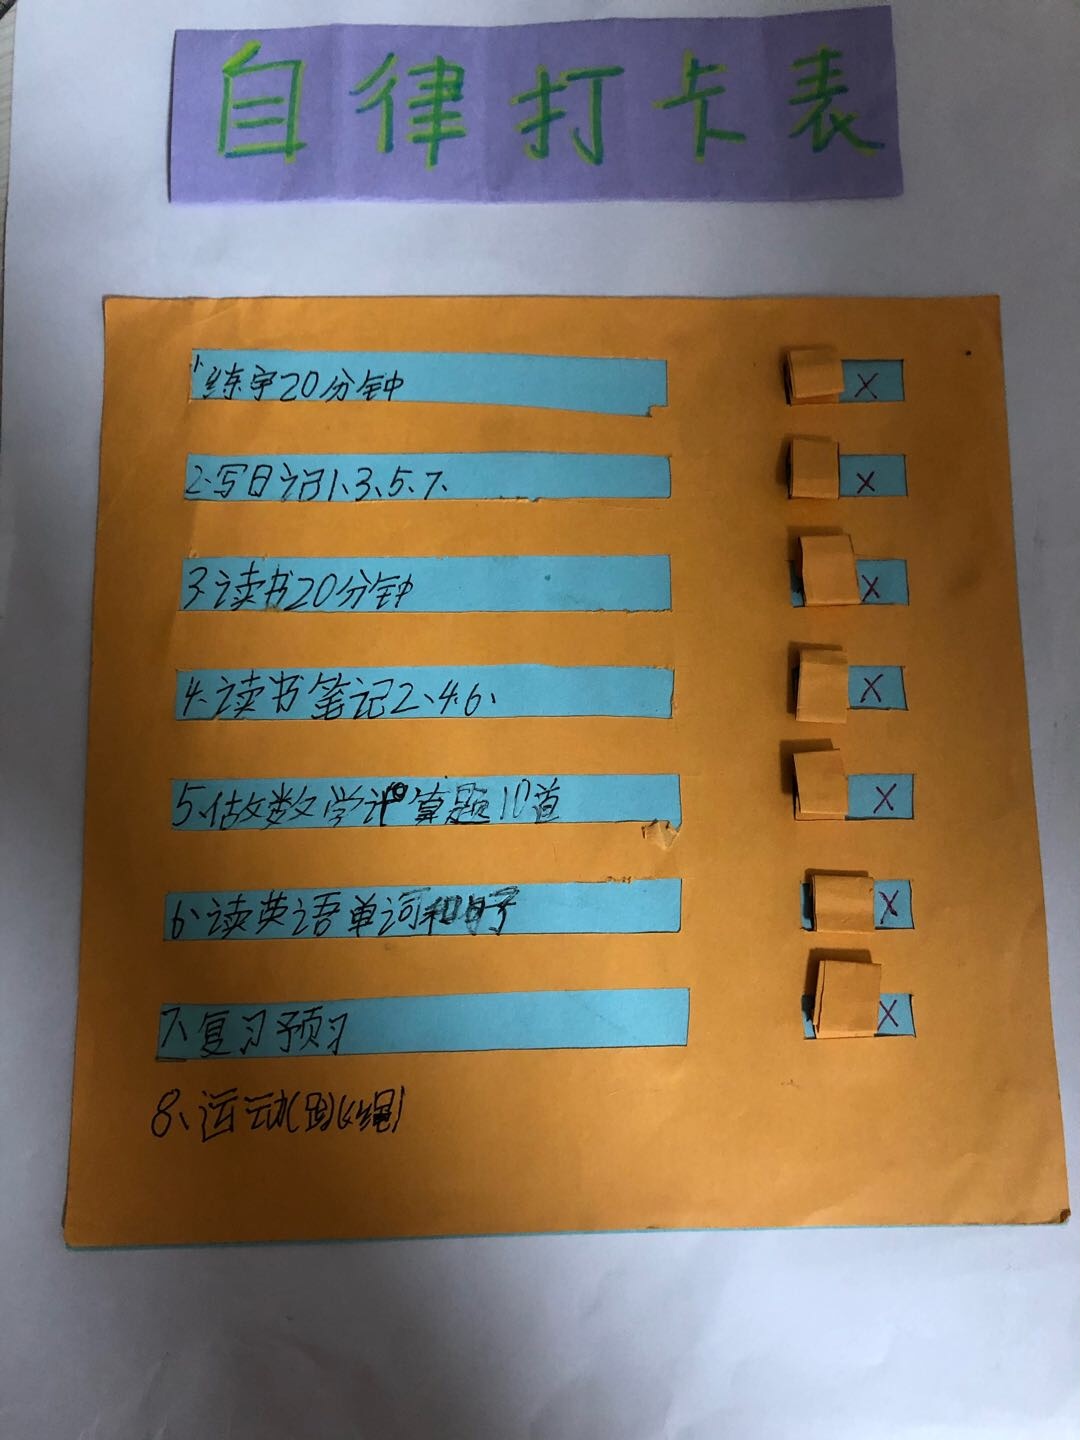 自律打卡表
1、练字20分钟 X
2、写日记1、3、5、7、 X
3、读书20分钟 X
4、读书笔记2、4、6、 X
5、做数学计算题10道 X
6、读英语单词和句子 X
7、复习预习 X
8、运动(跳绳)